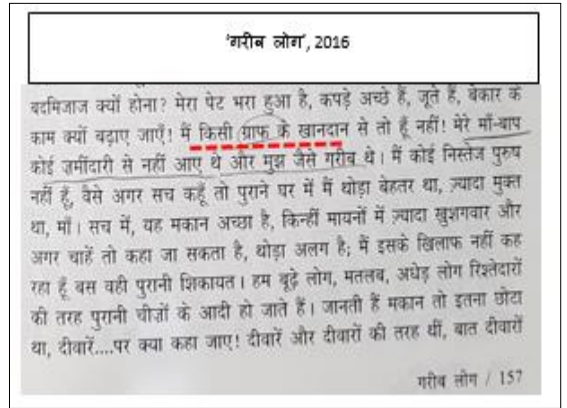 'गरीब लोग', 2016
बदमिजाज क्यों होना? मेरा पेट भरा हुआ है, कपड़े अच्छे हैं, जूते हैं, बेकार के
काम क्यों बढ़ाए जाएँ! मैं किसी ग्राफ के खानदान से तो हूँ नहीं! मेरे माँ-बाप
कोई ज़मींदारी से नहीं आए थे और मुझ जैसे गरीब थे। मैं कोई निस्तेज पुरुष
नहीं हूँ, वैसे अगर सच कहूँ तो पुराने घर में मैं थोड़ा बेहतर था, ज़्यादा मुक्त
था, माँ। सच में, यह मकान अच्छा है, किन्हीं मायनों में ज़्यादा खुशगवार और
अगर चाहें तो कहा जा सकता है, थोड़ा अलग है; मैं इसके खिलाफ नहीं कह
रहा हूँ बस वही पुरानी शिकायत। हम बूढ़े लोग, मतलब, अधेड़ लोग रिश्तेदारों
की तरह पुरानी चीज़ों के आदी हो जाते हैं। जानती हैं मकान तो इतना छोटा
था, दीवारें....पर क्या कहा जाए! दीवारें और दीवारों की तरह थीं, बात दीवारों
गरीब लोग / 157